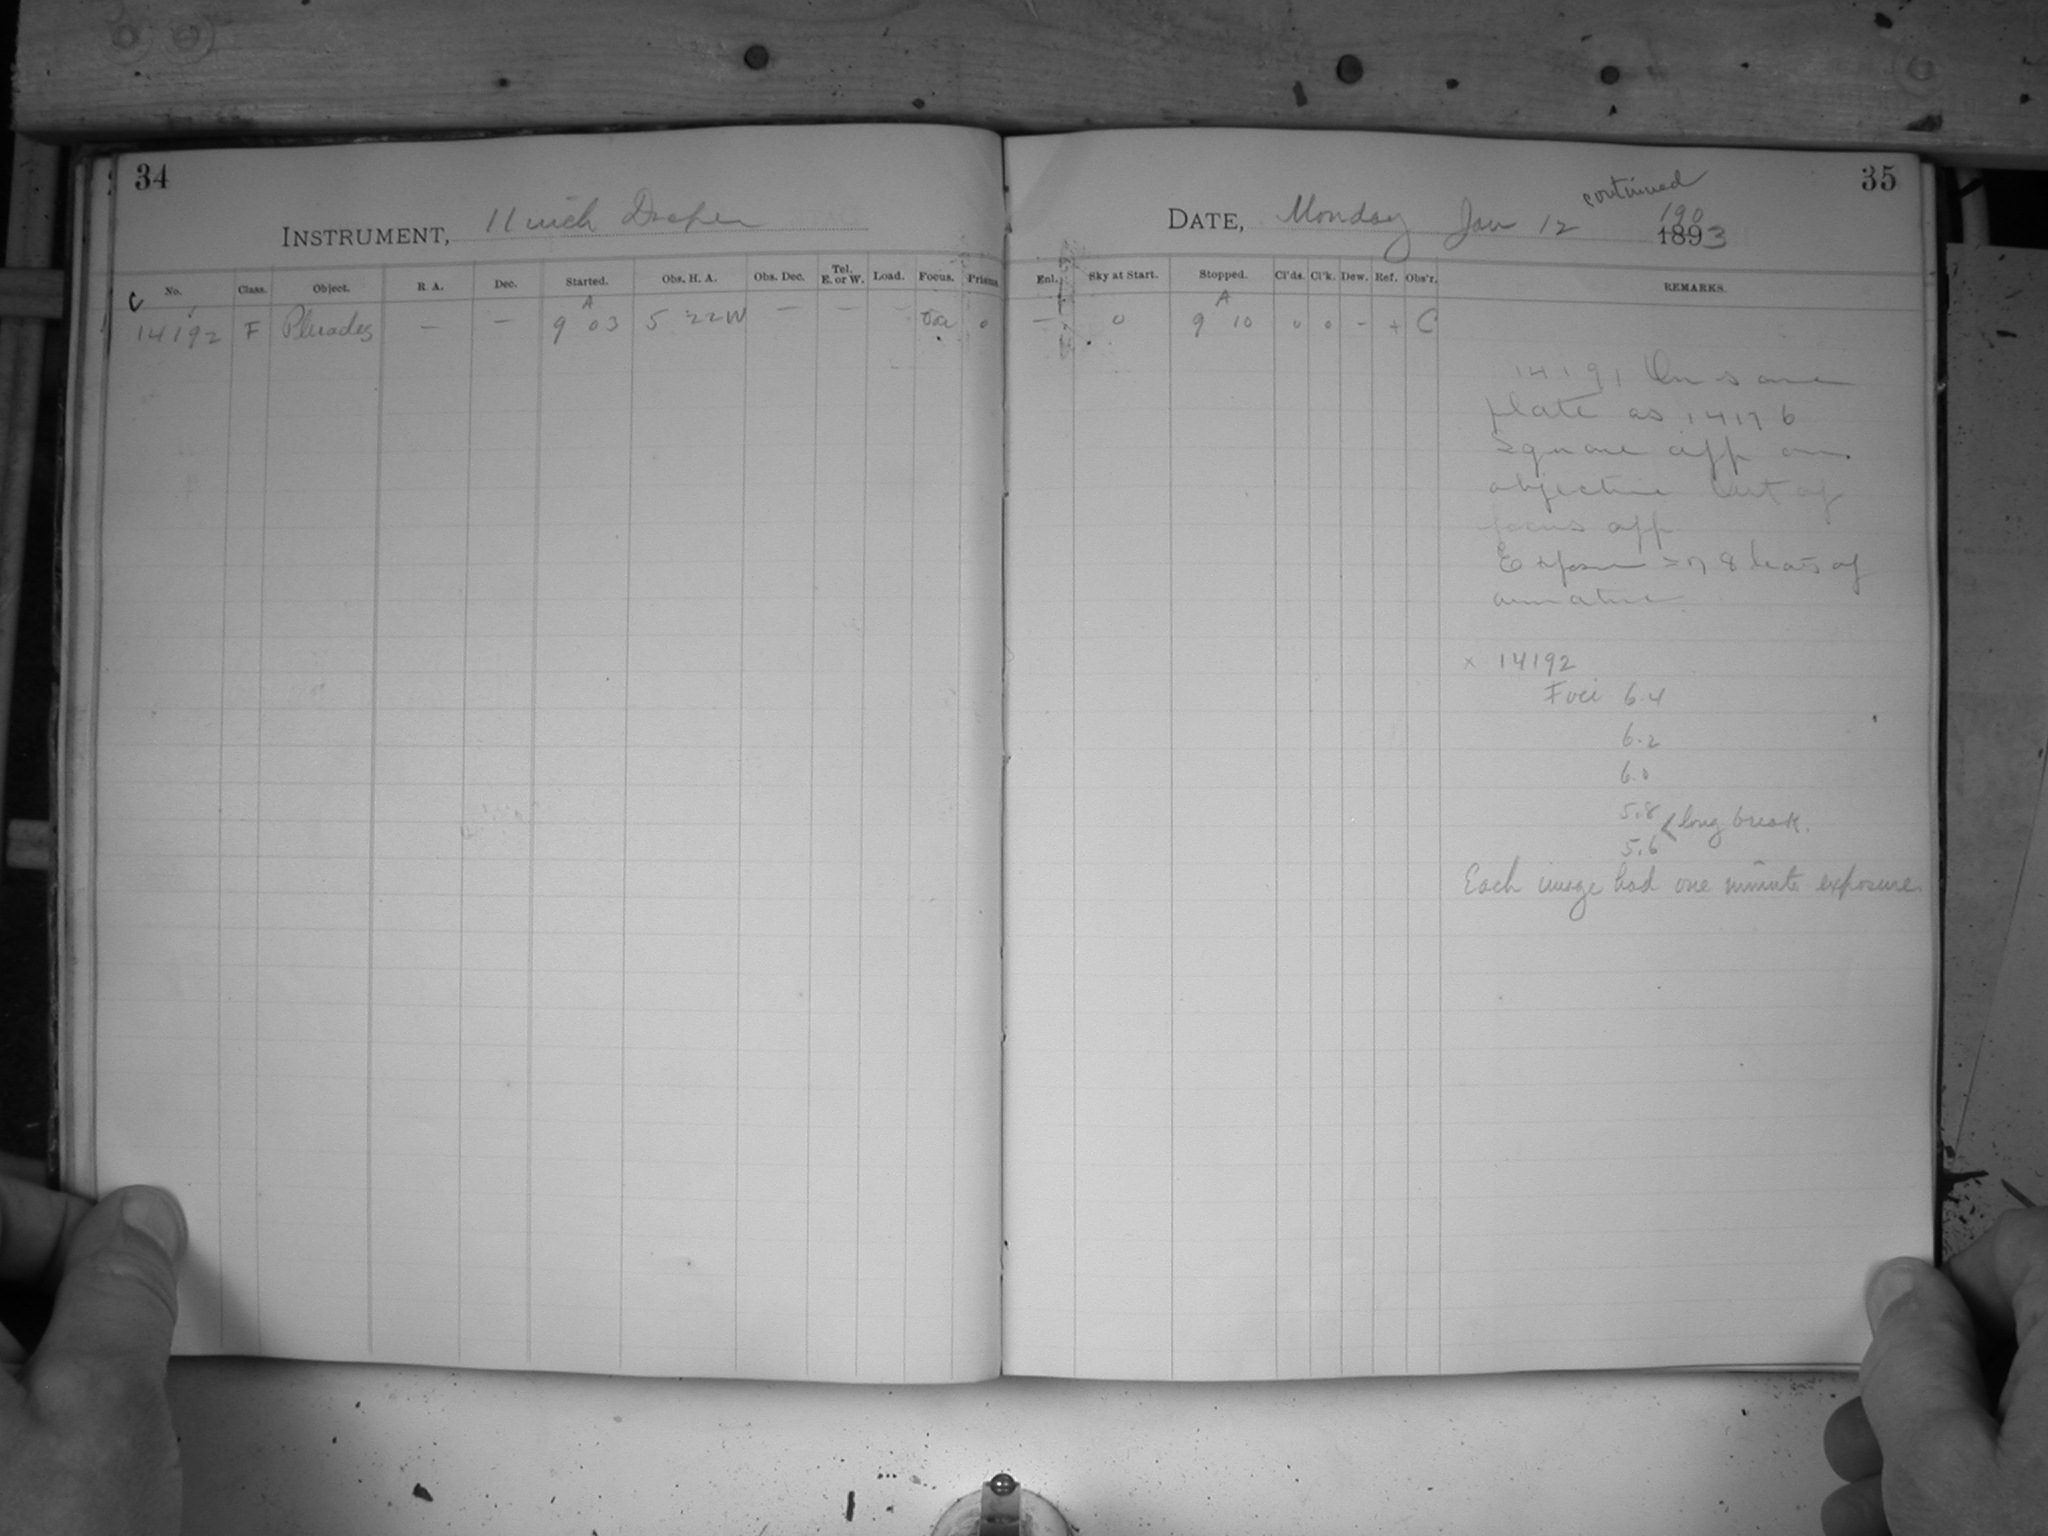 34
INSTRUMENT, 11 inch Draper
No. Class. Object. R. A. Dec. Started. Obs. H. A. Obs. Dec. Tel. E. or W. Load. Focus. Prisms
C 14192 F Pleiades — — A 9 03 5 22W — — - 0
35
continued
DATE, Monday Jan 12 190 1893
Enl. Sky at Start. Stopped. Cl'ds. Cl'k. Dew. Ref. Obs'r. REMARKS.
— 0 A 9 10 0 0 - + C
14191 On same
plate as 14176
Square app on
objective Out of
focus app
Exposure 8 beats of
armature
x 14192
Foci 6.4
6.2
6.0
5.8
< long break.
5.6
Each image had one minute exposure